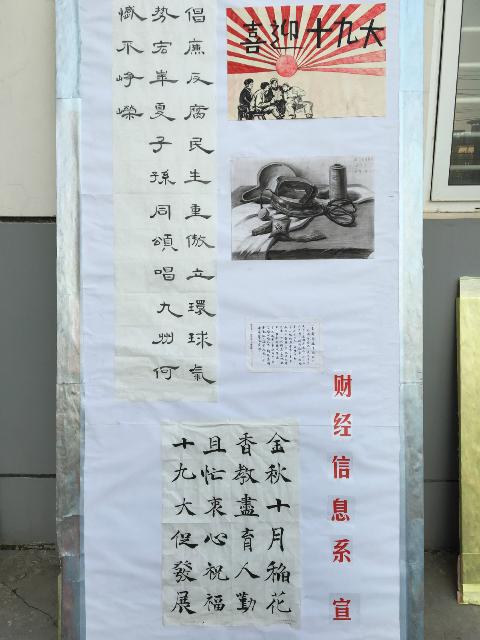 喜迎十九大
倡廉反腐民生重傲立環球氣
势宏華夏子孫同頌唱九州何
不崢嶸
金秋十月稻花
香教盡育人勤
且忙衷心祝福
十九大促發展
财经信息系宣